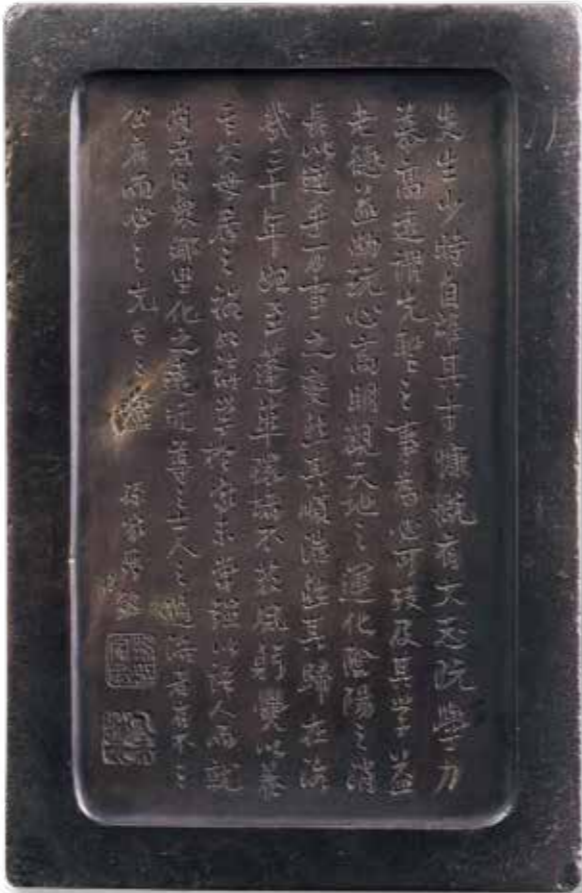 先生少時自雄其才慷慨有大志既學力
慕高遠謂先聖之事為必可致及其學益
老德益劭玩心高明觀天地之運化陰陽之消
長以達乎万事之變然其順浩然其歸在洛
幾三十年始至蓬蓽環堵不蔽風躬爨以養
父母居之裕如講學於家未嘗強以語人而就
問者日衆鄉里化之遠近尊之士人之道洛者有不之
公府而必之先生之廬 孫家鼐